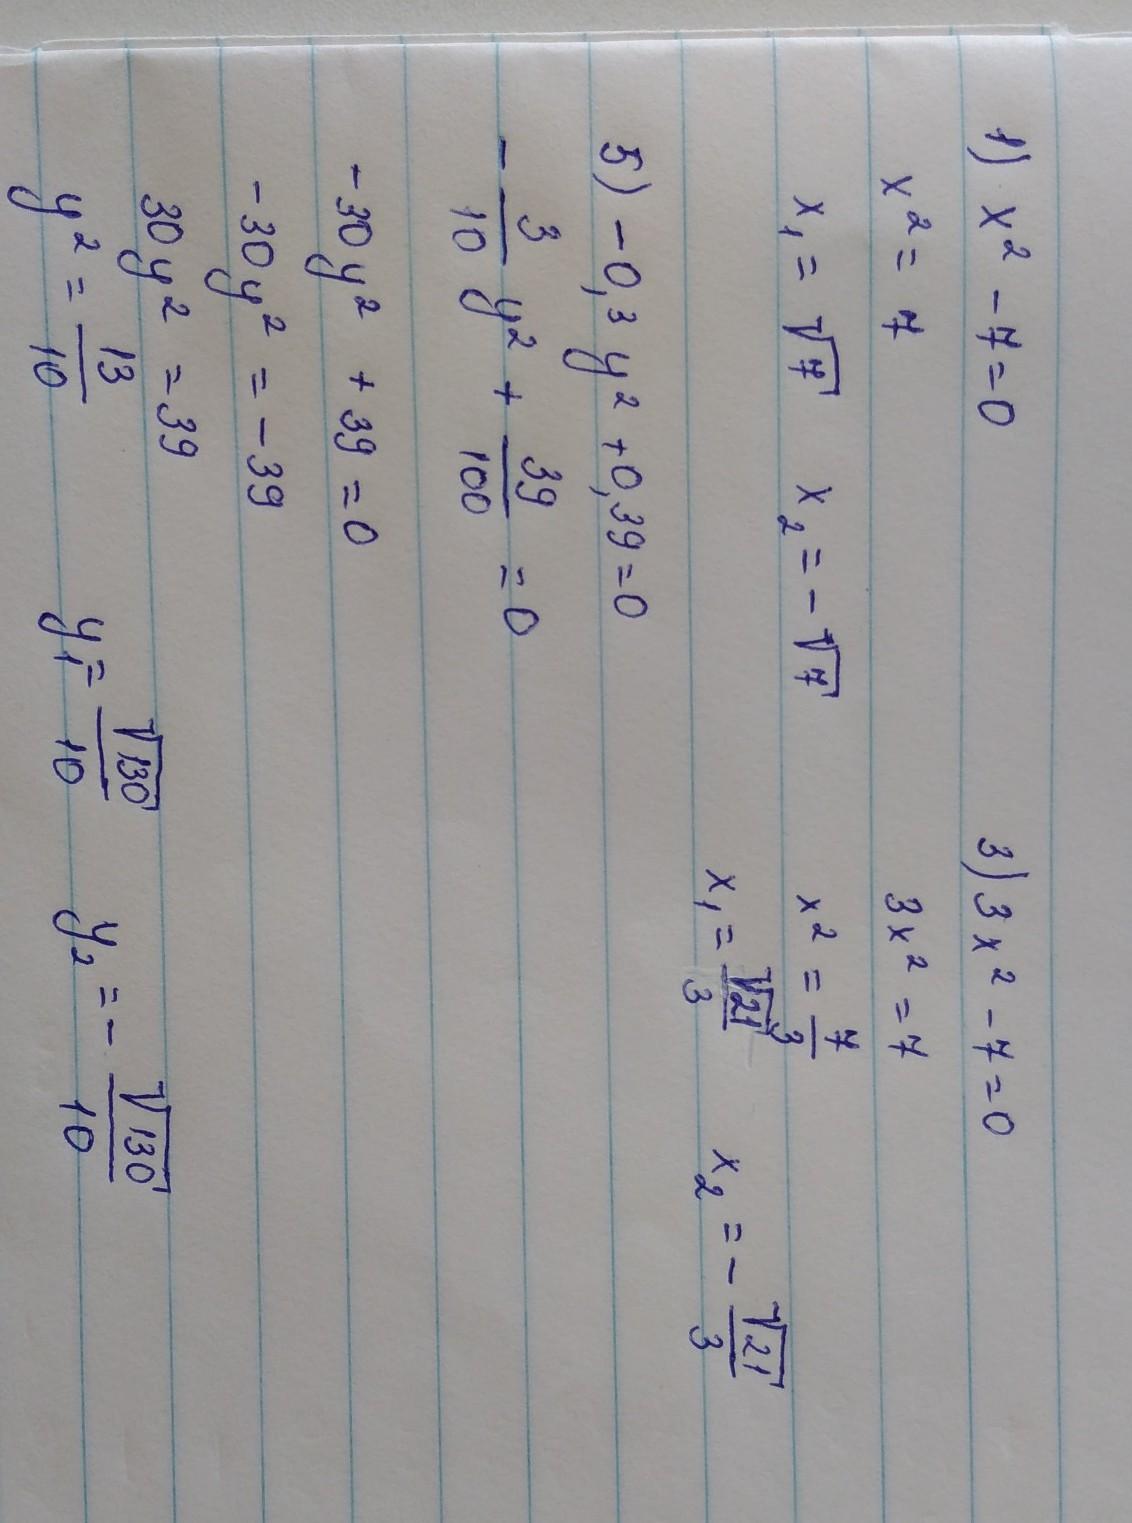 1) x² - 7 = 0
x² = 7
x₁ = √7 x₂ = -√7
3) 3x² - 7 = 0
3x² = 7
x² = 7/3
x₁ = √21/3 x₂ = -√21/3
5) -0,3y² + 0,39 = 0
-3/10 y² + 39/100 = 0
-30y² + 39 = 0
-30y² = -39
30y² = 39
y² = 13/10 y₁ = √130/10 y₂ = -√130/10